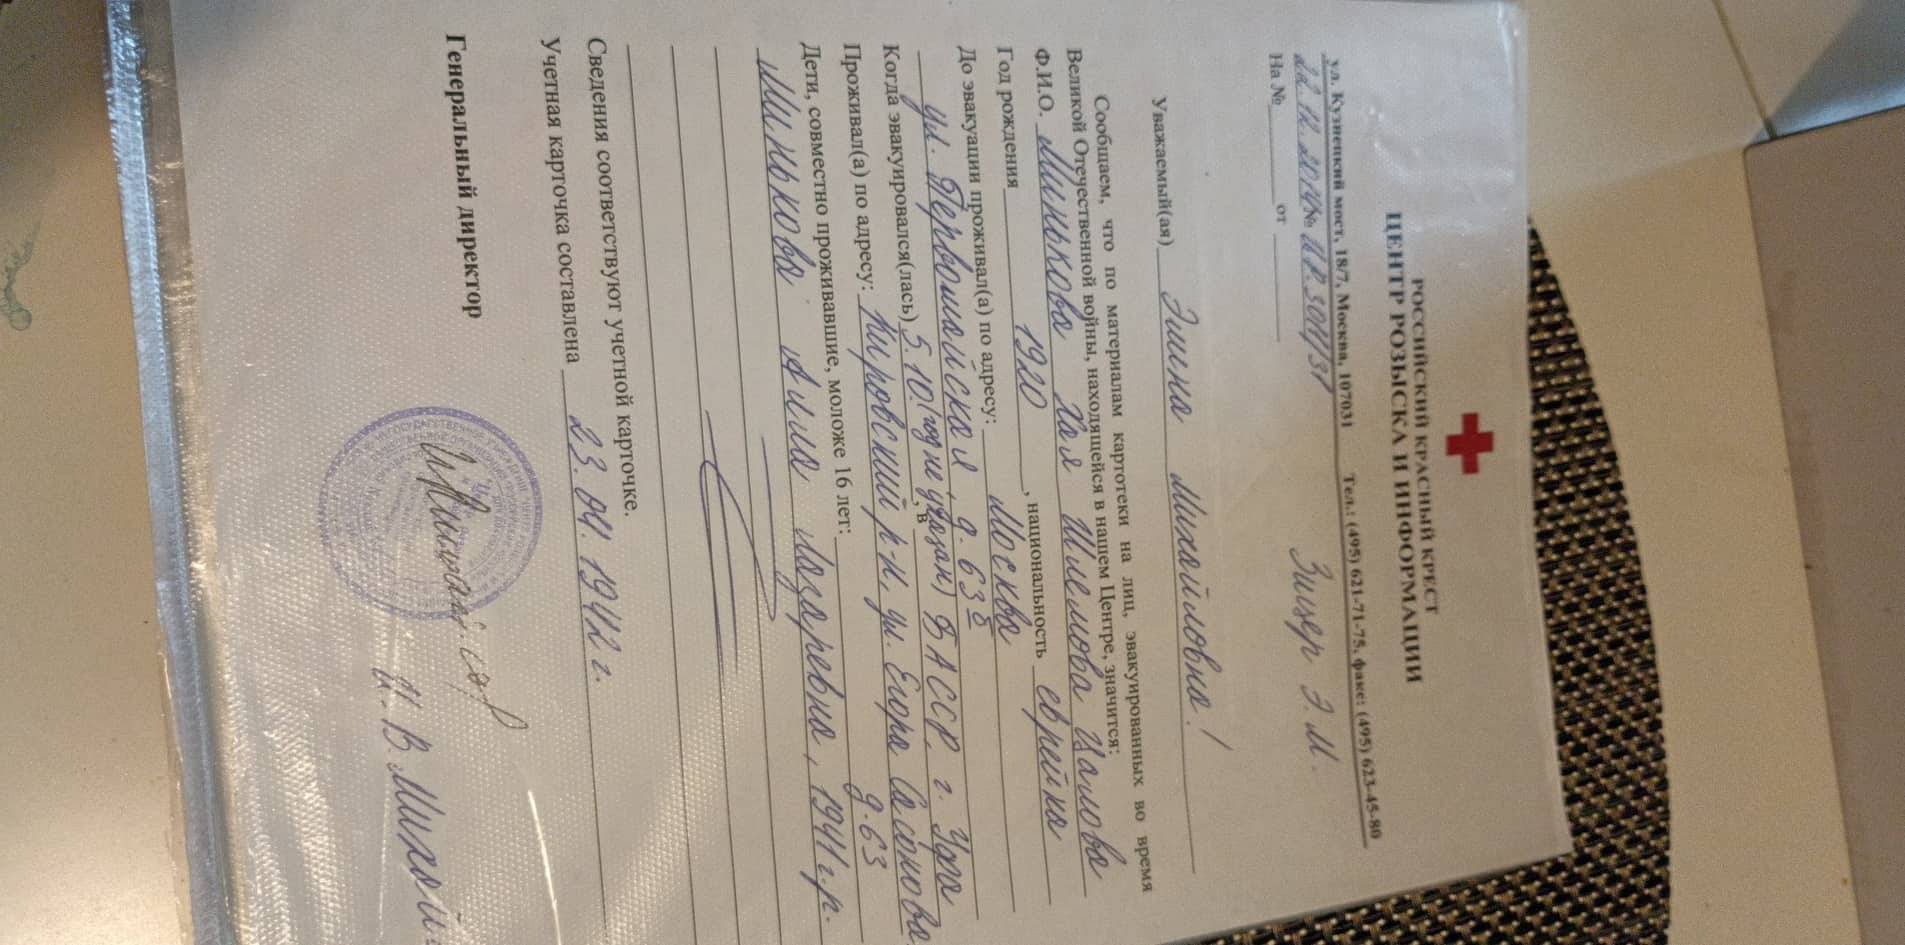 РОССИЙСКИЙ КРАСНЫЙ КРЕСТ
ЦЕНТР РОЗЫСКА И ИНФОРМАЦИИ
ул. Кузнецкий мост, 18/7, Москва, 107031 Тел.: (495) 621-71-75, факс: (495) 623-45-80
22.12.2014 № Зигер Э. М.
На № от
Уважаемый(ая) Элина Михайловна!
Сообщаем, что по материалам картотеки на лиц, эвакуированных во время
Великой Отечественной войны, находящейся в нашем Центре, значится:
Ф.И.О. Минькова Хая Шлемова Цалова
Год рождения 1920, национальность еврейка
До эвакуации проживал(а) по адресу: Москва
ул. Первомайская, д. 63 б
Когда эвакуировался(лась) 5.10.(год не указан), в БАССР, г. Уфа
Проживал(а) по адресу: Кировский р-н, ул. Егора Сазонова
д. 63
Дети, совместно проживавшие, моложе 16 лет:
Минькова Алла Лазаревна, 1941 г.р.
Сведения соответствуют учетной карточке.
Учетная карточка составлена 23.04.1942 г.
Генеральный директор
И. В. Михай